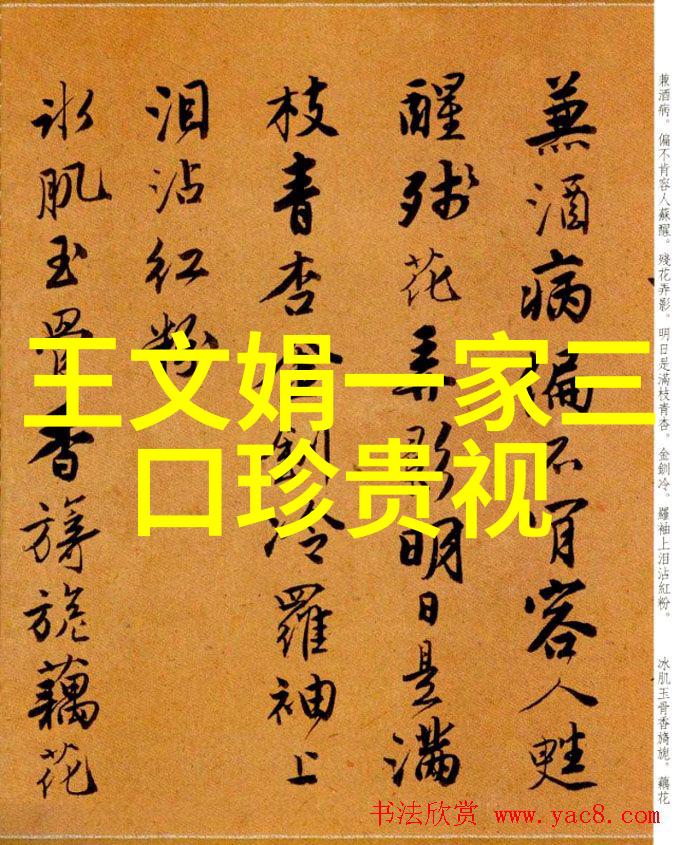 兼酒病偏不肯容人甦
醒殘花弄影明日是滿
枝青杏金釧冷羅袖上
泪沾紅粉
冰肌玉骨香旖旎藕花
兼酒病。偏不肯容人蘇醒。殘花弄影。明日是滿枝青杏。金釧冷。羅袖上泪沾紅粉。
冰肌玉骨香旖旎。藕花
王文娟一家三
口珍贵视
书法欣赏 www.yac8.com